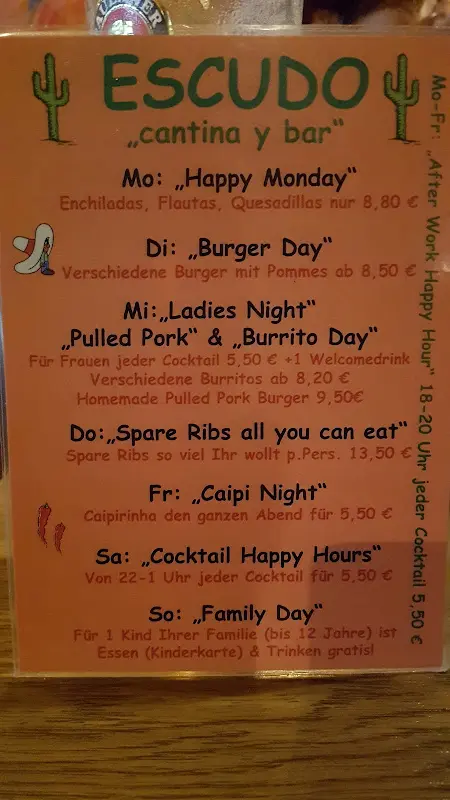 ESCUDO
„cantina y bar“
Mo: „Happy Monday“
Enchiladas, Flautas, Quesadillas nur 8,80 €
Di: „Burger Day“
Verschiedene Burger mit Pommes ab 8,50 €
Mi:„Ladies Night“
„Pulled Pork“ & „Burrito Day“
Für Frauen jeder Cocktail 5,50 € +1 Welcomedrink
Verschiedene Burritos ab 8,20 €
Homemade Pulled Pork Burger 9,50€
Do:„Spare Ribs all you can eat“
Spare Ribs so viel Ihr wollt p.Pers. 13,50 €
Fr: „Caipi Night“
Caipirinha den ganzen Abend für 5,50 €
Sa: „Cocktail Happy Hours“
Von 22-1 Uhr jeder Cocktail für 5,50 €
So: „Family Day“
Für 1 Kind Ihrer Familie (bis 12 Jahre) ist
Essen (Kinderkarte) & Trinken gratis!
Mo-Fr: „After Work Happy Hour“ 18-20 Uhr jeder Cocktail 5,50 €